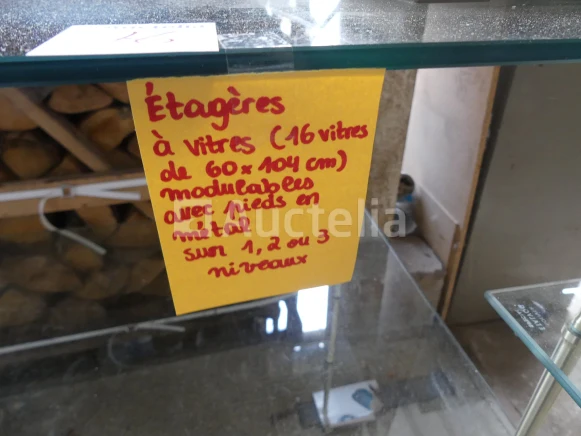 Étagères
à vitres (16 vitres
de 60 x 104 cm)
modulables
avec pieds en
métal
sur 1, 2 ou 3
niveaux
Auctelia